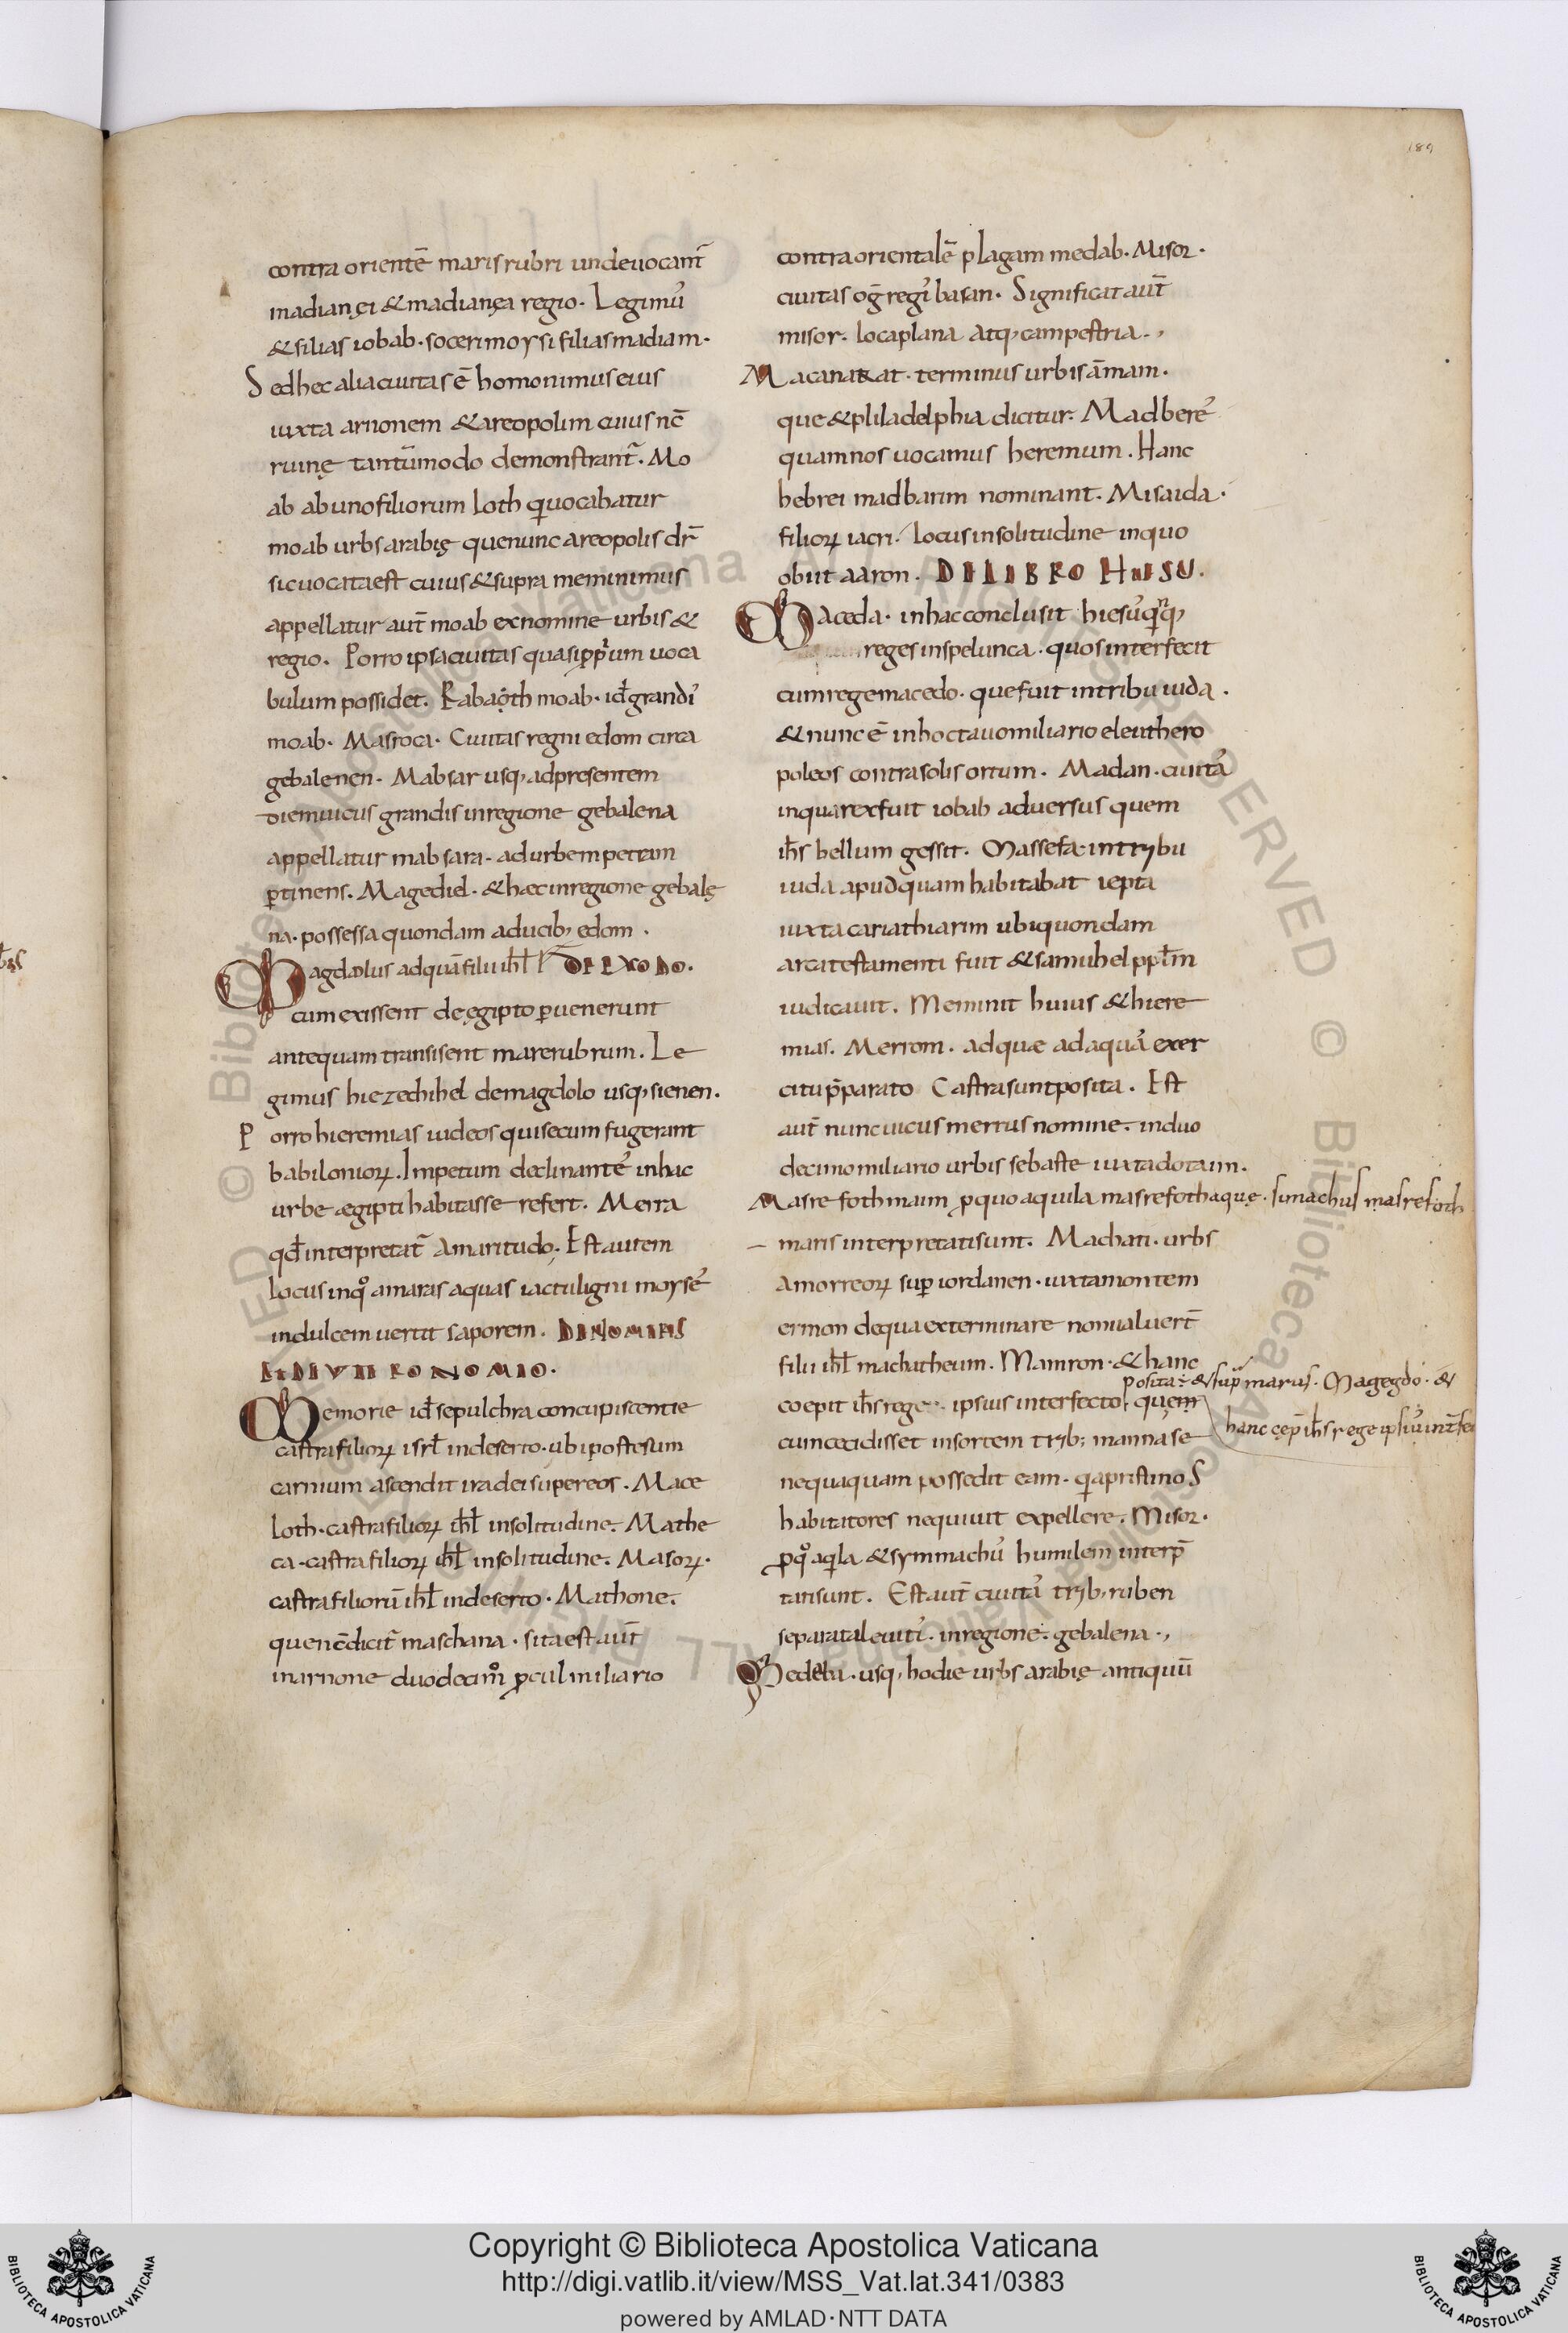 189
contra orientē maris rubri unde uocant̄
madianęi & madianęa regio. Legimus
& filias iobab. soceri moysi filias madiam.
Sed hec alia ciuitas ē homonimus eius
iuxta arnonem & areopolim cuius nc̄
ruinę tantūmodo demonstrant̄. Mo
ab ab uno filiorum loth q uocabatur
moab urbs arabię que nunc areopolis dr̄
sic uocata est cuius & supra meminimus
appellatur aut̄ moab ex nomine urbis &
regio. Porro ipsa ciuitas quasi ppium uoca
bulum possidet. Rabaoth moab. id grandis
moab. Masroca. Ciuitas regni edom circa
gebalenen. Mabsar usq; ad presentem
diem uicus grandis in regione gebalena
appellatur mabsara. ad urbem petram
ptinens. Magediel. & hæc in regione gebalę
na. possessa quondam a ducib; edom.
Magdolus ad quā filii ihl DE EXODO.
cum exissent de ęgipto puenerunt
antequam transisent mare rubrum. Le
gimus hiezechihel de magdolo usq; sienen.
Porro hieremias iudeos qui secum fugerant
babilonior̄. Impetum declinantes in hac
urbe ægipti habitasse refert. Merra
qd interpretat̄ amaritudo. Est autem
locus in quo amaras aquas iactu ligni moyses
in dulcem uertit saporem. DENOMERIS
ET DEVTERONOMIO.
Memorie id sepulchra concupiscentie
castra filior̄ isrl in deserto. ubi post esum
carnium ascendit ira dei super eos. Mace
loth. castra filior̄ ihl in solitudine. Mathe
ca. castra filior̄ ihl in solitudine. Masor̄.
castra filiorū ihl in deserto. Mathone.
que nc̄ dicit̄ maschana. sita est aut̄
in arnone duodecimo pcul miliario
contra orientalē plagam medab. Misor.
ciuitas og regis basan. Significat aut̄
misor. loca plana atq; campestria.,
Macanarat. terminus urbis āmam.
que & philadelphia dicitur. Madberes
quam nos uocamus heremum. Hanc
hebrei madbarim nominant. Misaida.
filior̄ iacri. locus in solitudine in quo
obiit aaron. DE LIBRO HIESU.
Maceda. in hac conclusit hiesus quinq;
reges in spelunca. quos interfecit
cum rege macedo. que fuit in tribu iuda.
& nunc ē in hoctauo miliario eleuthero
poleos contra solis ortum. Madan. ciuitas
in qua rex fuit iobab adversus quem
ihs bellum gessit. Massefa. in trybu
iuda apud quam habitabat iepta
iuxta cariathiarim ubi quondam
arca testamenti fuit & samuhel pplm
iudicauit. Meminit huius & hiere
mias. Merrom. ad quæ ad aquas exer
citu pparato Castra sunt posita. Est
aut̄ nunc uicus merrus nomine. in duo
decimo miliario urbis sebaste iuxta dotaim.
Masrefoth maim p quo aquila masrefoth aque. simachus masrefoth
maris interpretati sunt. Machati. urbs
amorreor̄ sup iordanen. iuxta montem
ermon de qua exterminare non ualuert̄
filii ihl machatheum. Mamron. & hanc
posita. & sup marus. Magegdo. &
coepit ihs rege ipsius interfecto. quem
hanc cep ihs rege ipsius int̄fec
cum cecidisset in sortem tryb; mannase
nequaquam possedit eam. q a pristinos
habitatores nequiuit expellere. Misor.
p quo aqila & symmachus humilem interp̄
tati sunt. Est aut̄ ciuitas tryb; ruben
separata leuitis. in regione. gebalena.,
Medeba. usq; hodie urbs arabię antiquū
Copyright © Biblioteca Apostolica Vaticana
http://digi.vatlib.it/view/MSS_Vat.lat.341/0383
powered by AMLAD·NTT DATA